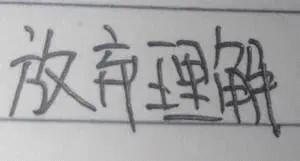 放弃理解